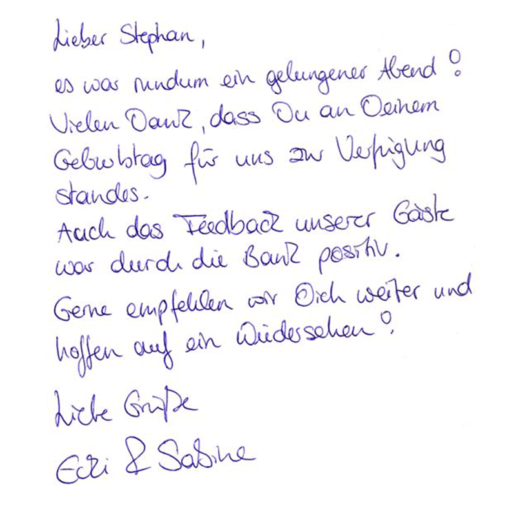 Lieber Stephan,
es war rundum ein gelungener Abend!
Vielen Dank, dass Du an Deinem
Geburtstag für uns zur Verfügung
standes.
Auch das Feedback unserer Gäste
war durch die Bank positiv.
Gerne empfehlen wir Dich weiter und
hoffen auf ein Wiedersehen!
Liebe Grüße
Ecki & Sabine